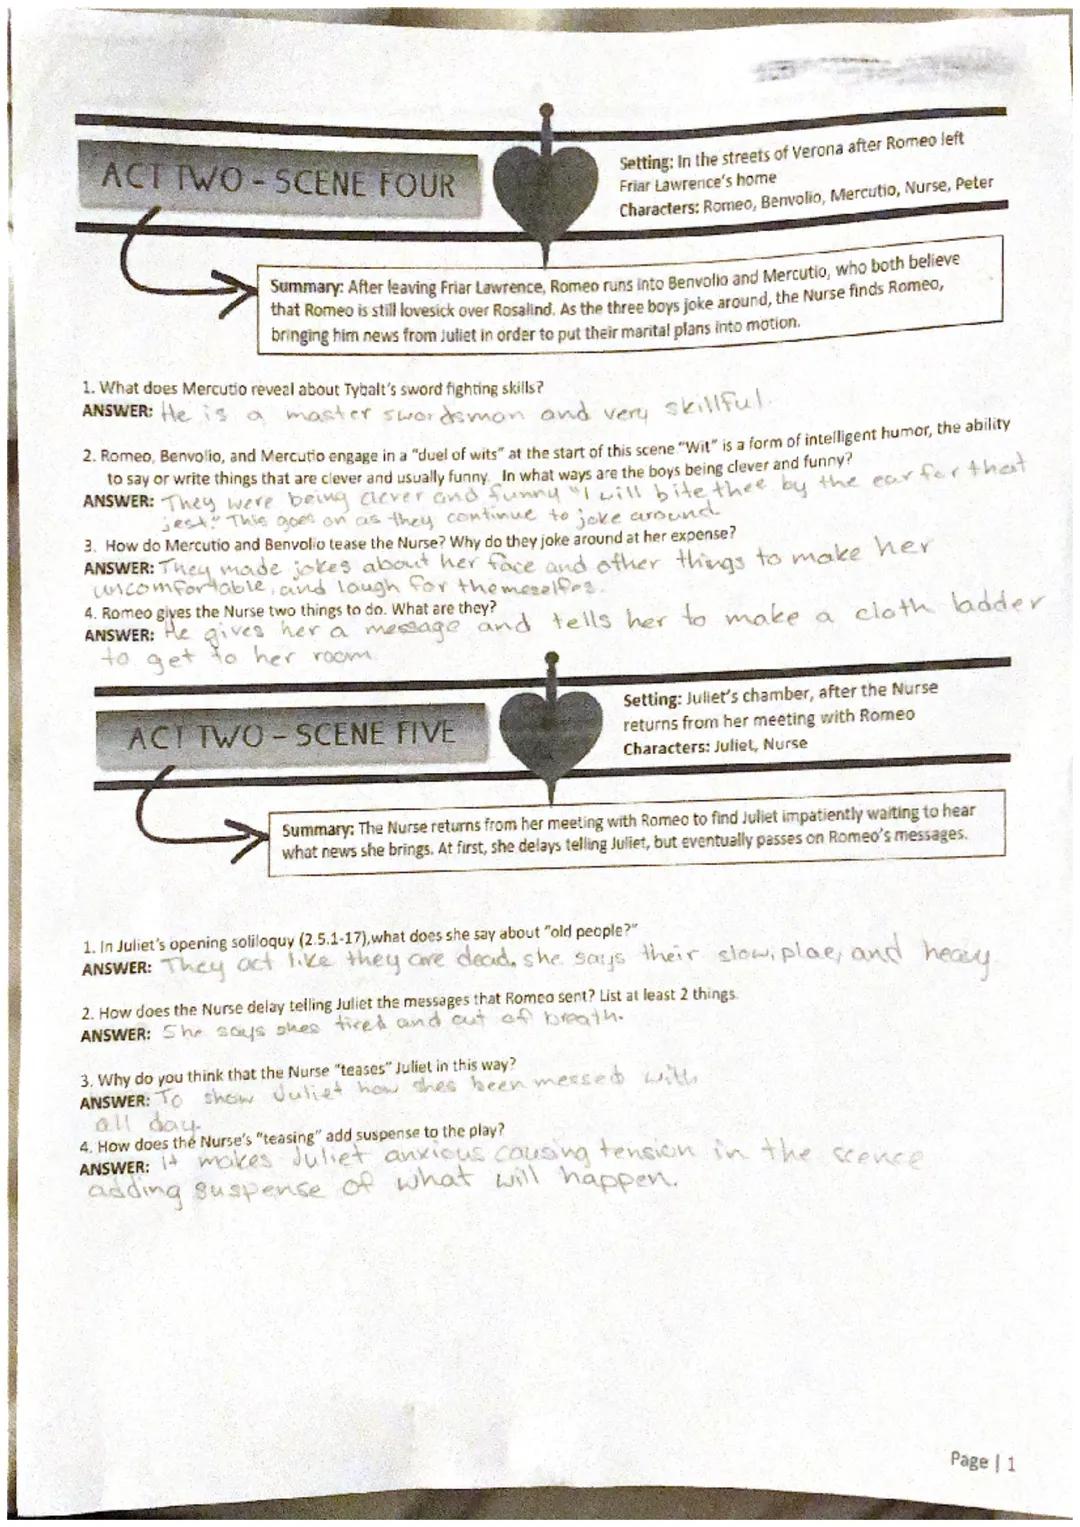 ACT TWO - SCENE FOUR
Setting: In the streets of Verona after Romeo left
Friar Lawrence's home
Characters: Romeo, Benvolio, Mercutio, Nurse, Peter
Summary: After leaving Friar Lawrence, Romeo runs into Benvolio and Mercutio, who both believe
that Romeo is still lovesick over Rosalind. As the three boys joke around, the Nurse finds Romeo,
bringing him news from Juliet in order to put their marital plans into motion.
1. What does Mercutio reveal about Tybalt's sword fighting skills?
ANSWER: He is a master swordsman and very skillful.
2. Romeo, Benvolio, and Mercutio engage in a "duel of wits" at the start of this scene "Wit" is a form of intelligent humor, the ability
to say or write things that are clever and usually funny. In what ways are the boys being clever and funny?
ANSWER: They were being clever and funny "I will bite thee by the ear for that
jest." This goes on as they continue to joke around.
3. How do Mercutio and Benvolio tease the Nurse? Why do they joke around at her expense?
ANSWER: They made jokes about her face and other things to make her
uncomfortable, and laugh for themeselfes.
4. Romeo gives the Nurse two things to do. What are they?
ANSWER: He gives her a message and tells her to make a cloth ladder
to get to her room.
ACT TWO - SCENE FIVE
Setting: Juliet's chamber, after the Nurse
returns from her meeting with Romeo
Characters: Juliet, Nurse
Summary: The Nurse returns from her meeting with Romeo to find Juliet impatiently waiting to hear
what news she brings. At first, she delays telling Juliet, but eventually passes on Romeo's messages.
1. In Juliet's opening soliloquy (2.5.1-17), what does she say about "old people?"
ANSWER: They act like they are dead, she says their slow, plae, and heavy
2. How does the Nurse delay telling Juliet the messages that Romeo sent? List at least 2 things.
ANSWER: She says shes tired and out of breath.
3. Why do you think that the Nurse "teases" Juliet in this way?
ANSWER: To show Juliet how shes been messed with
all day.
4. How does the Nurse's "teasing" add suspense to the play?
ANSWER: It makes Juliet anxious causing tension in the scence
adding suspense of what will happen.
Page | 1